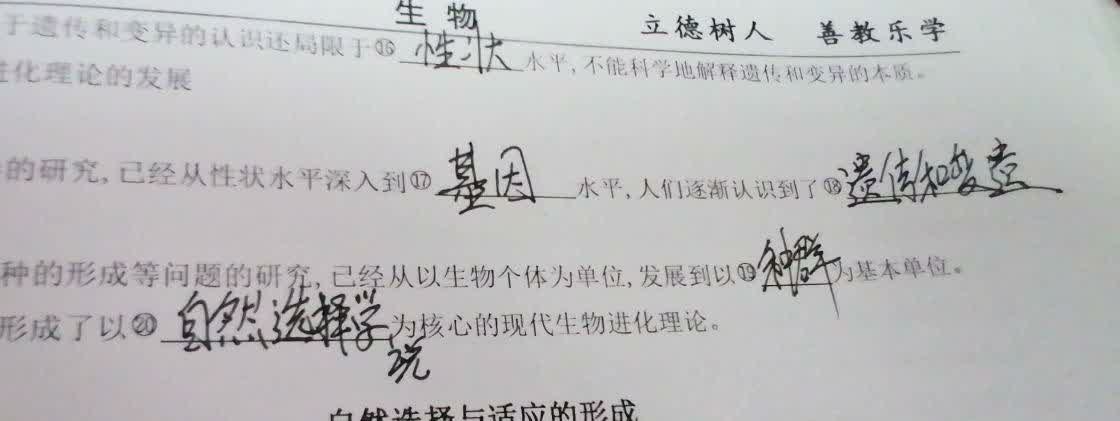 生物 立德树人 善教乐学
于遗传和变异的认识还局限于⑯性状水平,不能科学地解释遗传和变异的本质。
进化理论的发展
的研究,已经从性状水平深入到⑰基因水平,人们逐渐认识到了⑱遗传和变异
种的形成等问题的研究,已经从以生物个体为单位,发展到以⑲种群为基本单位。
形成了以⑳自然选择学说为核心的现代生物进化理论。
自然选择与适应的形成